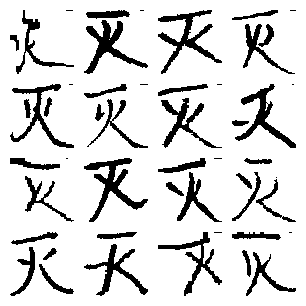 灭灭灭灭
灭灭灭灭
灭灭灭灭
灭灭灭灭